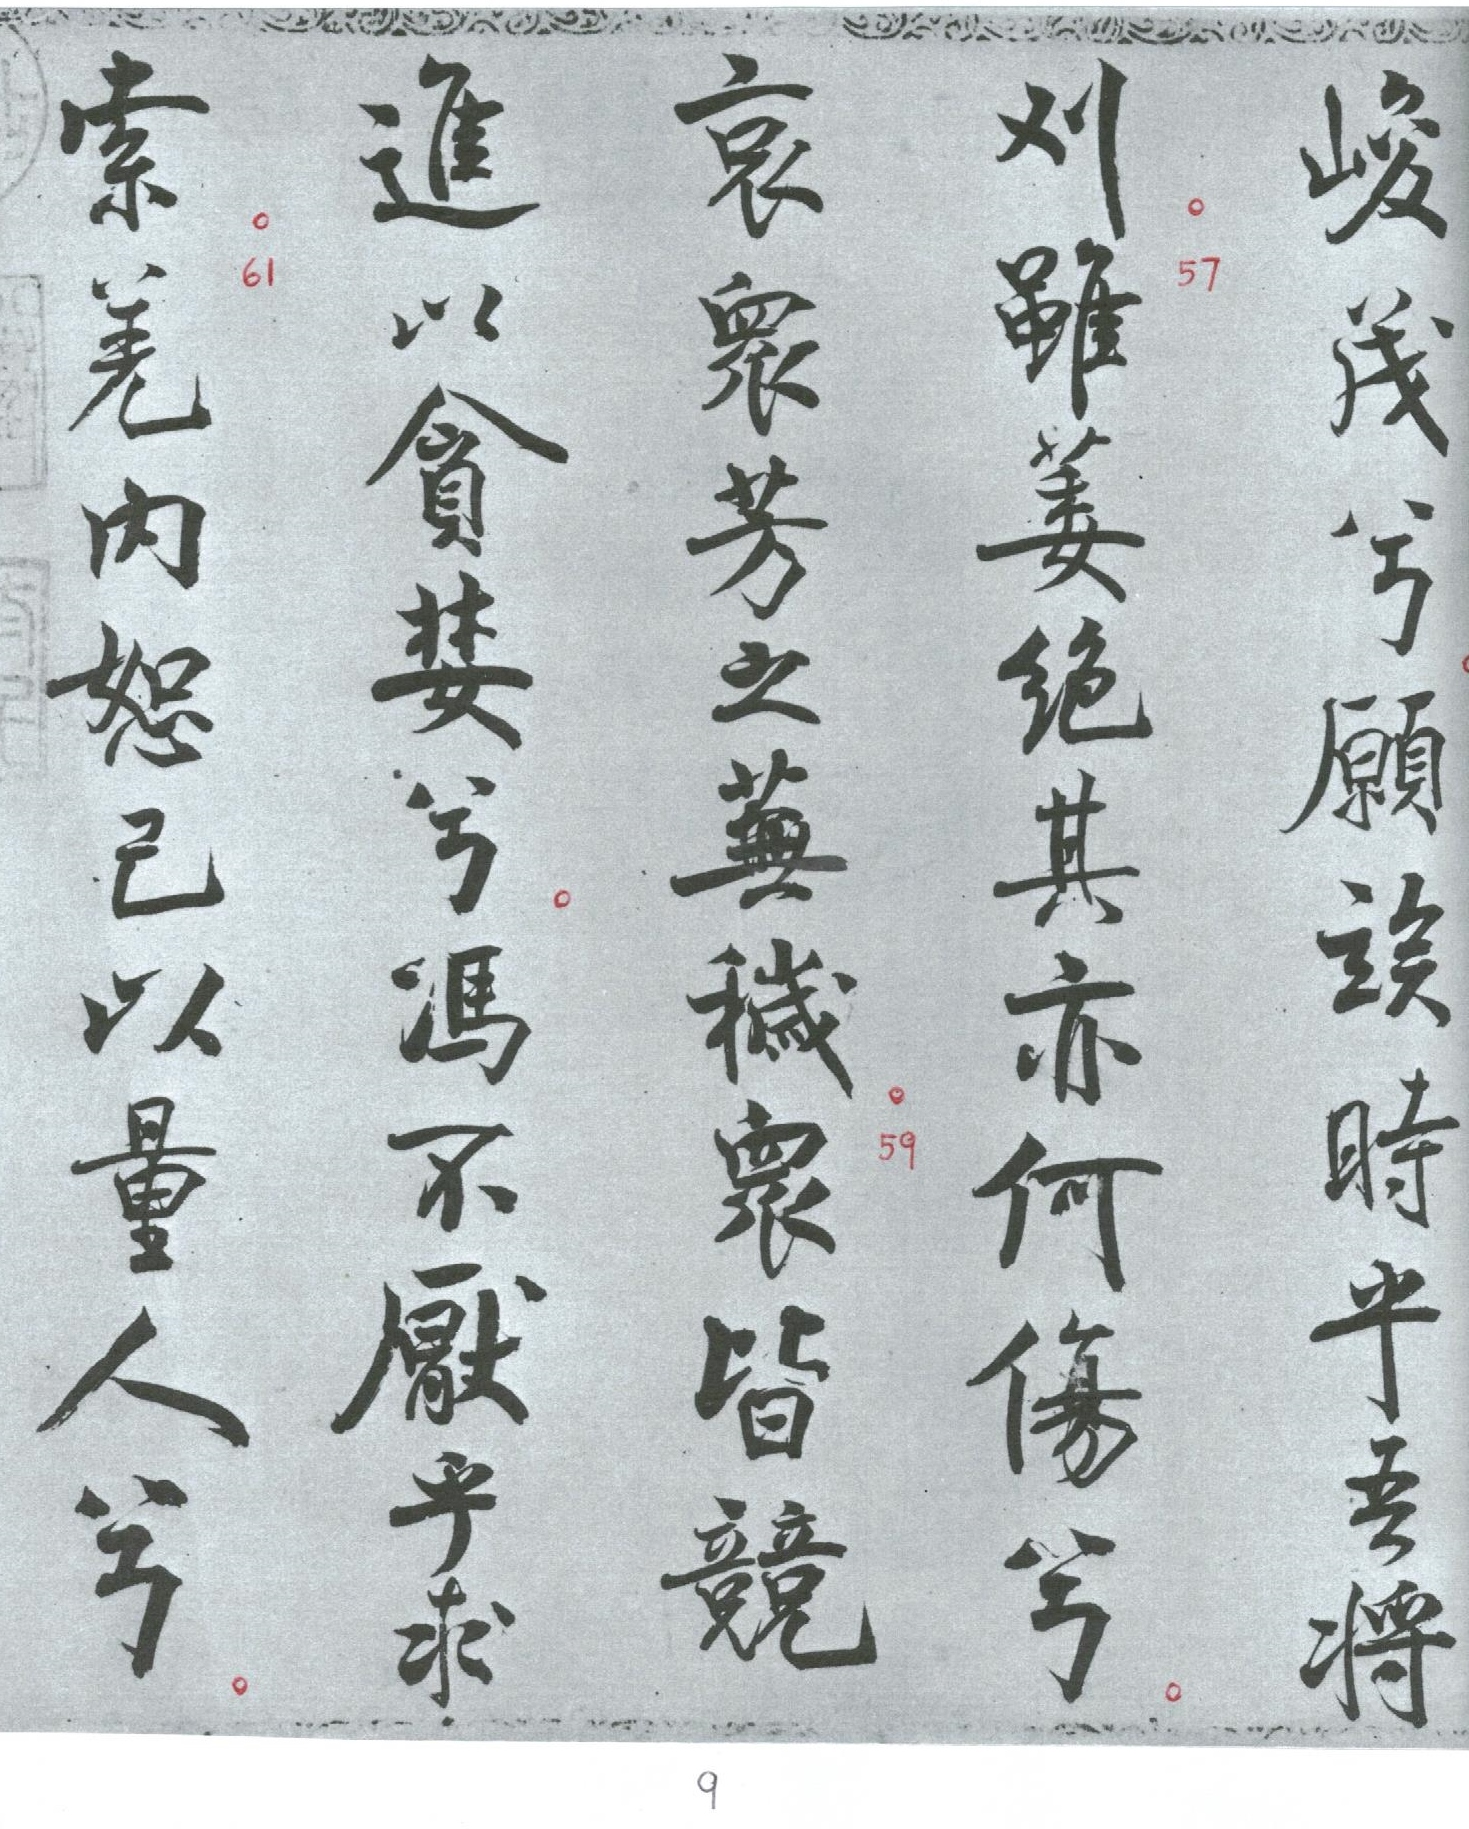 峻茂兮願竢時乎吾將
刈雖萎絶其亦何傷兮
57
哀眾芳之蕪穢眾皆競
59
進以貪婪兮馮不厭乎求
索羌内恕己以量人兮
61
9